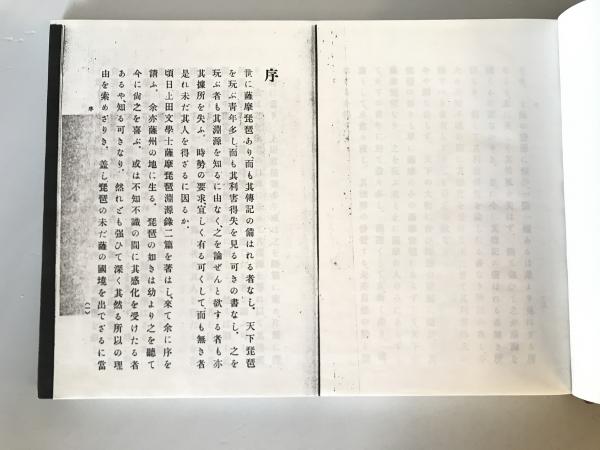 序
世に薩摩琵琶あり、而も其傳記の備はれる者なし。天下琵琶
を玩ぶ青年多し、而も其利害得失を見る可きの書なし。之を
玩ぶ者も其淵源を知るに由なく、之を論ぜんと欲する者も亦
其據所を失ふ。時勢の要求宜しく有る可くして、而も無き者
是れ未だ其人を得ざるに因るか。
頃日上田文學士薩摩琵琶淵源錄二篇を著はし、來て余に序を
請ふ。余亦薩州の地に生る。琵琶の如きは幼より之を聽て
今に尙之を喜ぶ。或は不知不識の間に其感化を受けたる者
あるや知る可きなり。然れども强ひて深く其然る所以の理
由を索めざりき。盖し琵琶の未だ薩の國境を出でざるに當
序
(一)